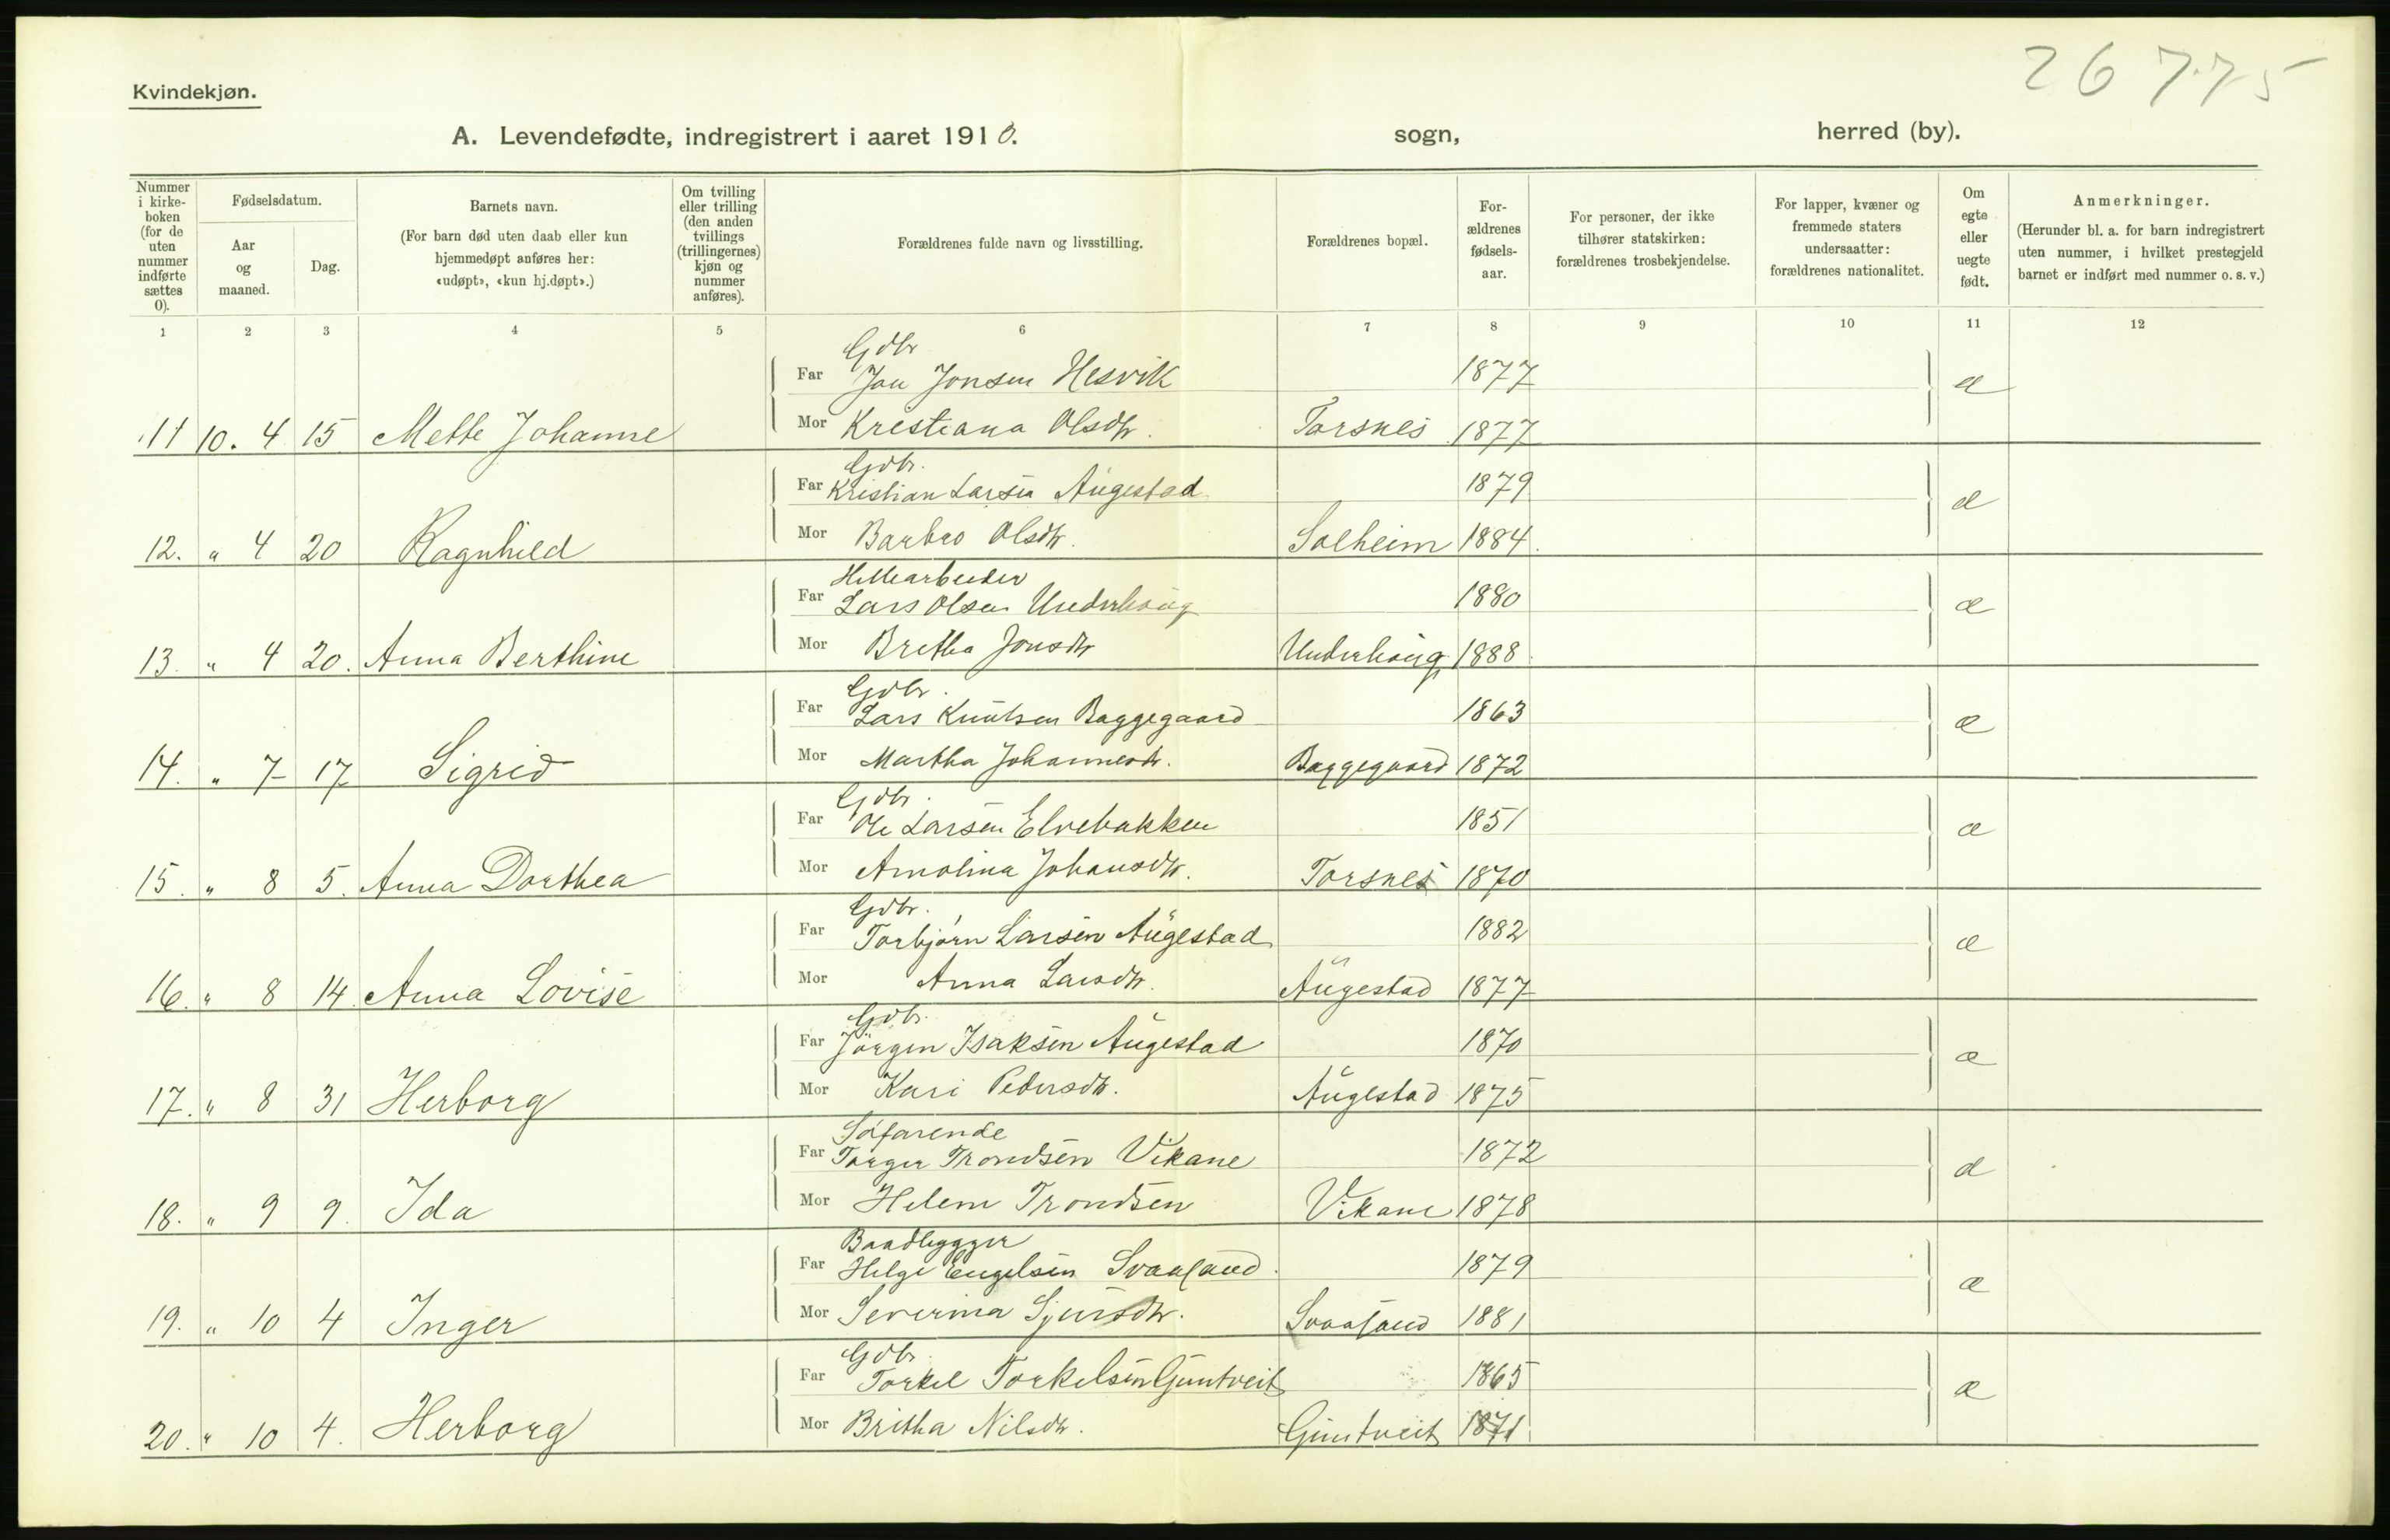 26 775
Kvindekjøn.
A. Levendefødte, indregistrert i aaret 1910. sogn, herred (by).
Nummer i kirke- boken (for de uten nummer indførte sættes 0).
Fødselsdatum.
Aar og maaned.
Dag.
Barnets navn.
(For barn død uten daab eller kun hjemmedøpt anføres her: «udøpt», «kun hj.døpt».)
Om tvilling eller trilling (den anden tvillings (trillingernes) kjøn og nummer anføres).
Forældrenes fulde navn og livsstilling.
Forældrenes bopæl.
For- ældrenes fødsels- aar.
For personer, der ikke tilhører statskirken: forældrenes trosbekjendelse.
For lapper, kvæner og fremmede staters undersaatter: forældrenes nationalitet.
Om egte eller uegte født.
Anmerkninger.
(Herunder bl. a. for barn indregistrert uten nummer, i hvilket prestegjeld barnet er indført med nummer o. s. v.)
1 2 3 4 5 6 7 8 9 10 11 12
Gdbr
Far Jon Jonsen Hesvik 1877 æ
11 10. 4 15 Mette Johanne Mor Kristiana Olsdtr. Torsnes 1877
Gdbr.
Far Kristian Larsen Augestad 1879 æ
12. " 4 20 Ragnhild Mor Barbro Olsdtr. Solheim 1884.
Hellearbeider
Far Lars Olsen Underhaug 1880 æ
13. " 4 20. Anna Berthine Mor Bretha Jonsdtr Underhaug 1888
Gdbr.
Far Lars Knutsen Baggegaard 1863 æ
14. " 7 17 Sigrid Mor Martha Johannesdtr. Baggegaard 1872
Gdbr.
Far Ole Larsen Elvebakken 1851 æ
15. " 8 5. Anna Dorthea Mor Amolina Johansdtr. Torsnes 1870
Gdbr.
Far Torbjørn Larsen Augestad 1882 æ
16. " 8 14 Anna Lovise Mor Anna Larsdtr. Augestad 1877
Gdbr.
Far Jørgen Isaksen Augestad 1870 æ
17. " 8 31 Herborg Mor Kari Pedersdtr. Augestad 1875
Søfarende
Far Torger Trondsen Vikane 1872 æ
18. " 9 9. Ida Mor Helene Trondsen Vikane 1878
Baadbygger
Far Helge Engelsen Svaasand. 1879 æ
19. " 10 4 Inger Mor Severina Sjursdtr. Svaasand 1881
Gdbr.
Far Torkel Torkelsen Guntveit 1865 æ
20. " 10 4. Herborg Mor Britha Nilsdtr. Guntveit 1871